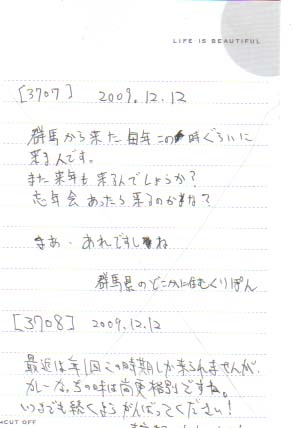 LIFE IS BEAUTIFUL
[3707] 2009.12.12
群馬から来た毎年この時ぐらいに
来る人です。
また来年も来るんでしょうか?
忘年会あったら来るのかな?
まあ、あれですしね
群馬県のどこかに住むくりぽん
[3708] 2009.12.12
最近は年1回この時期しか来られませんが、
カレーな 味は尚更格別ですね。
いつまでも続くようがんばってください!
CUT OFF